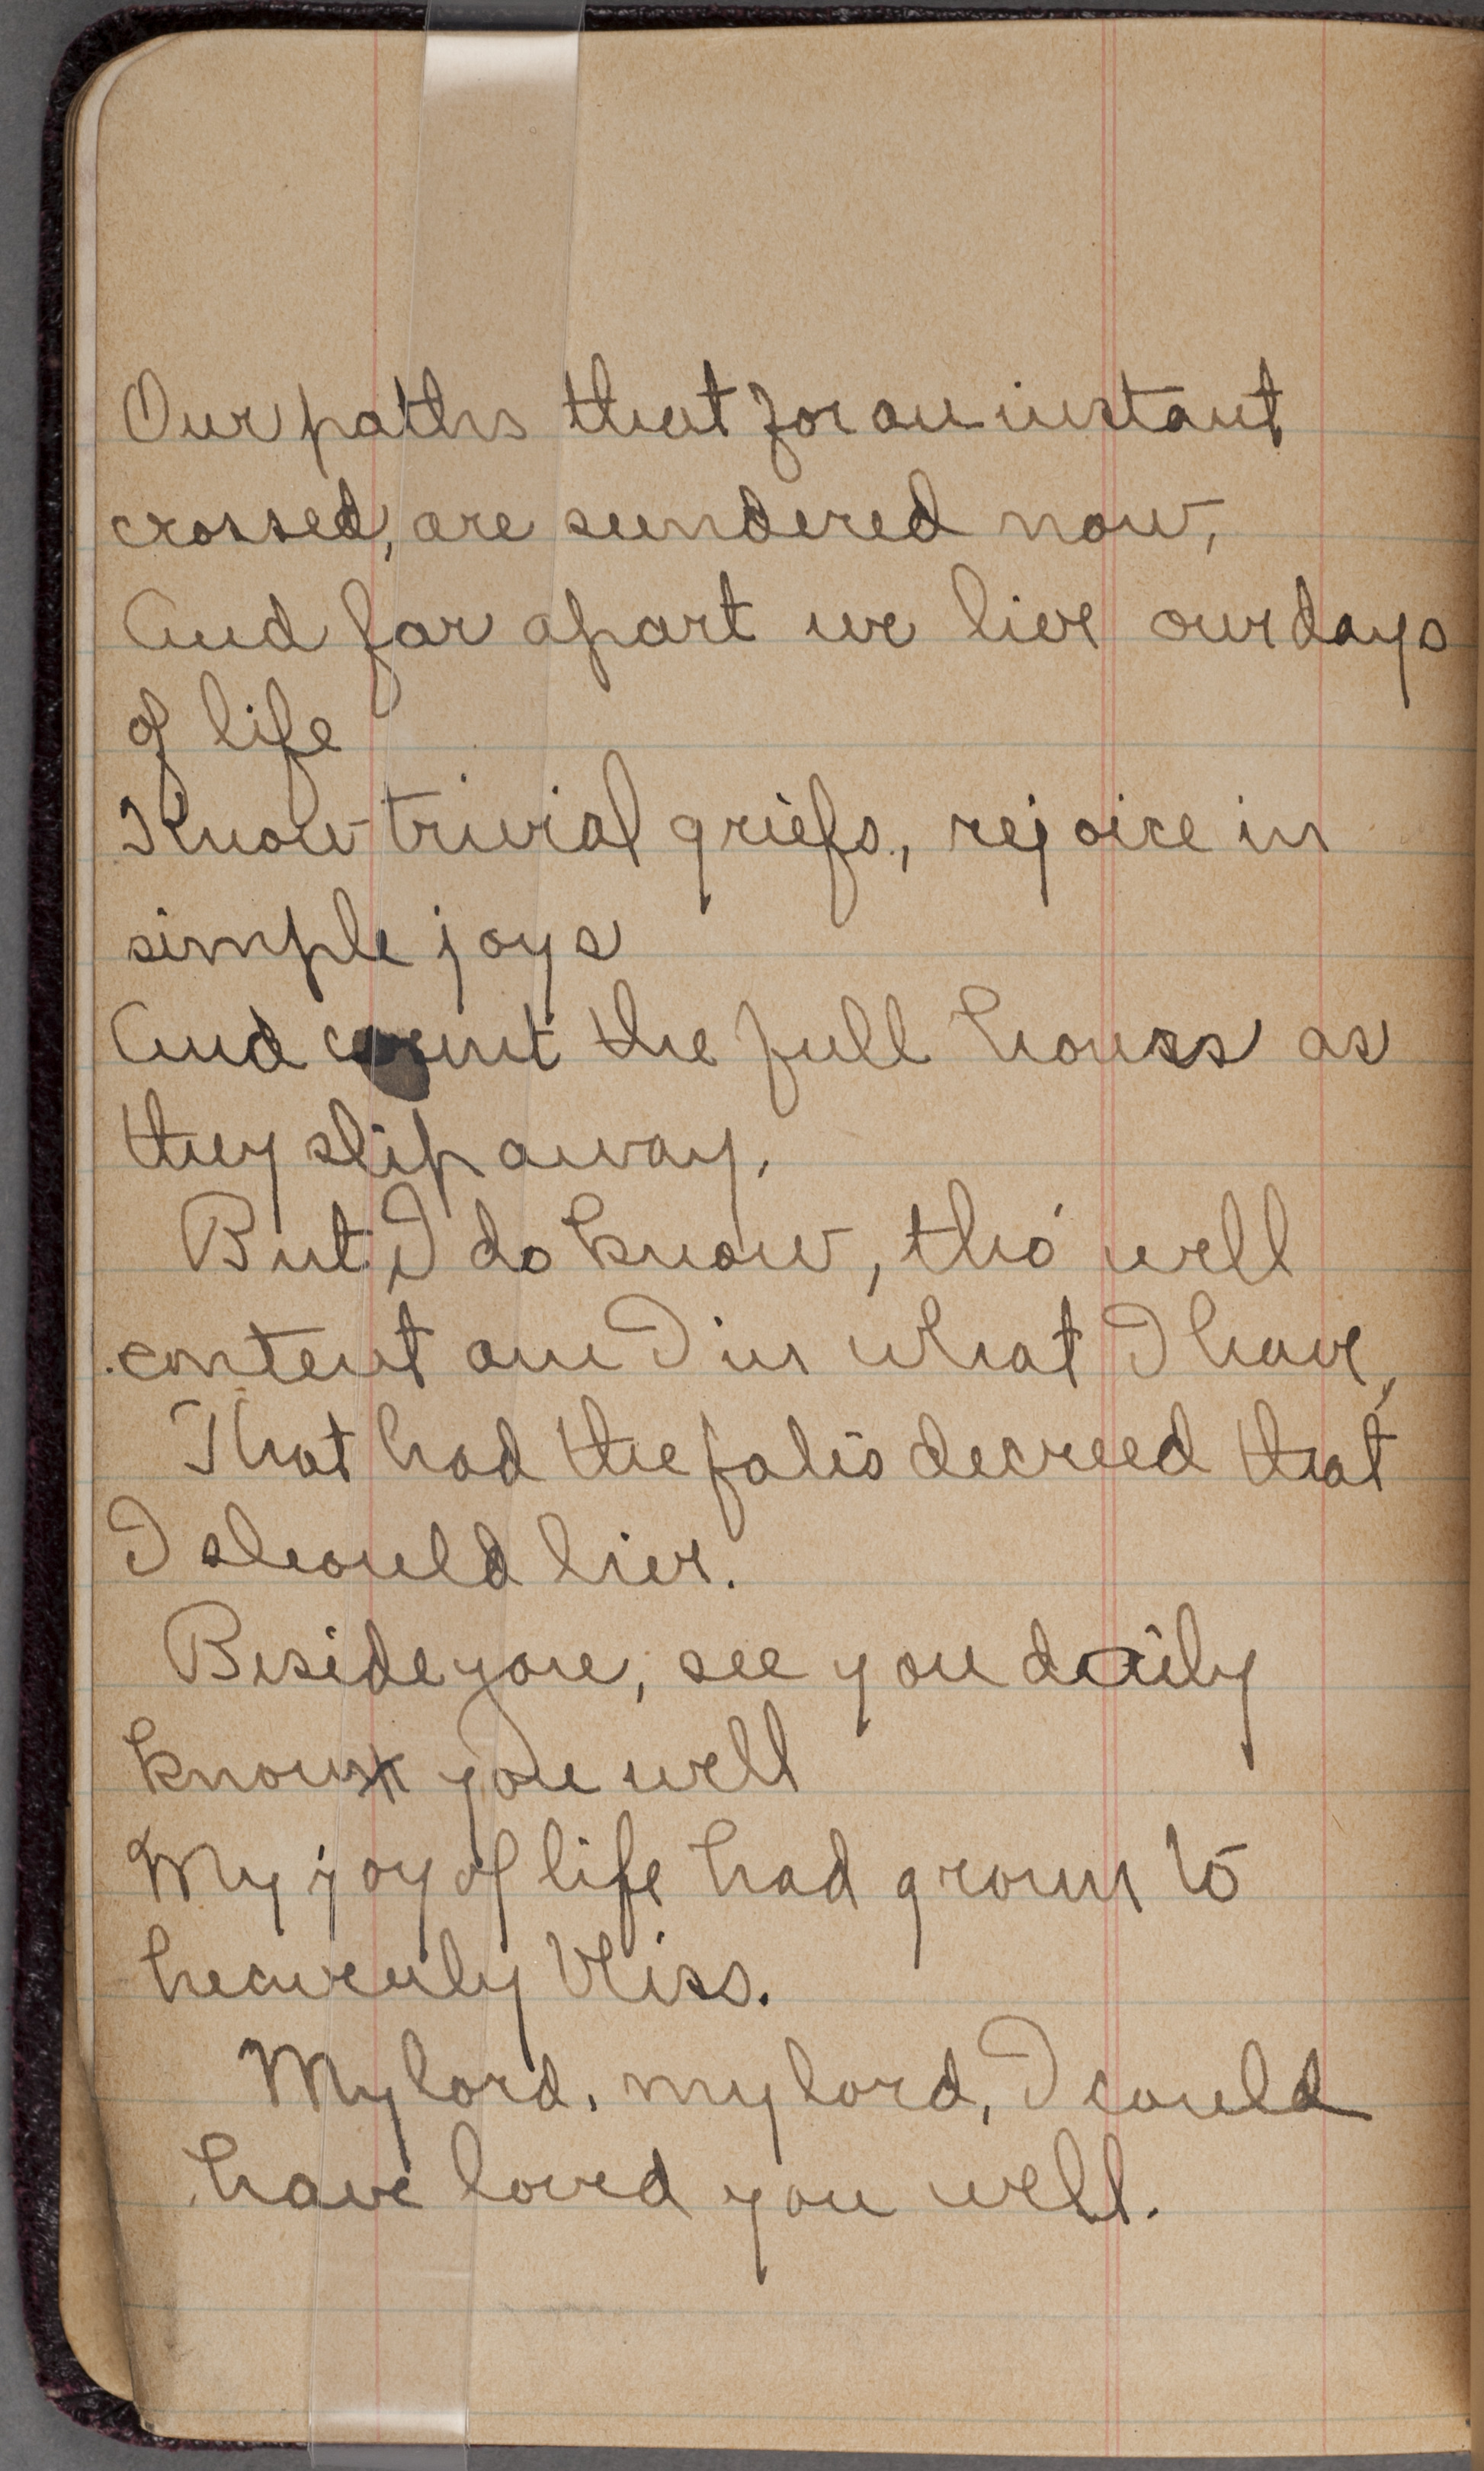 Our paths that for an instant
crossed, are sundered now,
And far apart we live our days
of life
Know trivial griefs, rejoice in
simple joys
And count the full hours as
they slip away.
But I do know, tho' well
content am I in what I have,
That had the fates decreed that
I should live.
Beside you, see you daily
know you well
My joy of life had grown to
heavenly bliss.
My lord, my lord, I could
have loved you well.